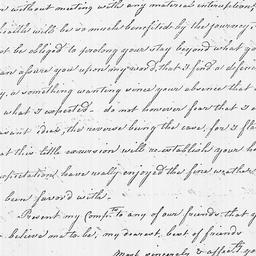 without meeting with any material interruption
health will be so much benefited by the journey,
not be obliged to prolong your stay beyond what yo
can assure you upon my word, that I find a deficien
y, a something wanting since your absence that
what I expected. do not however fear that I a
the reverse being the case, for I fl
at this little excursion will re-establish your he
expectations, have really enjoyed the fine weather
been favord with.
Present my Compts. to any of our friends, that y
believe me to be, my dearest, best of friends
Most sincerely & affecty. y